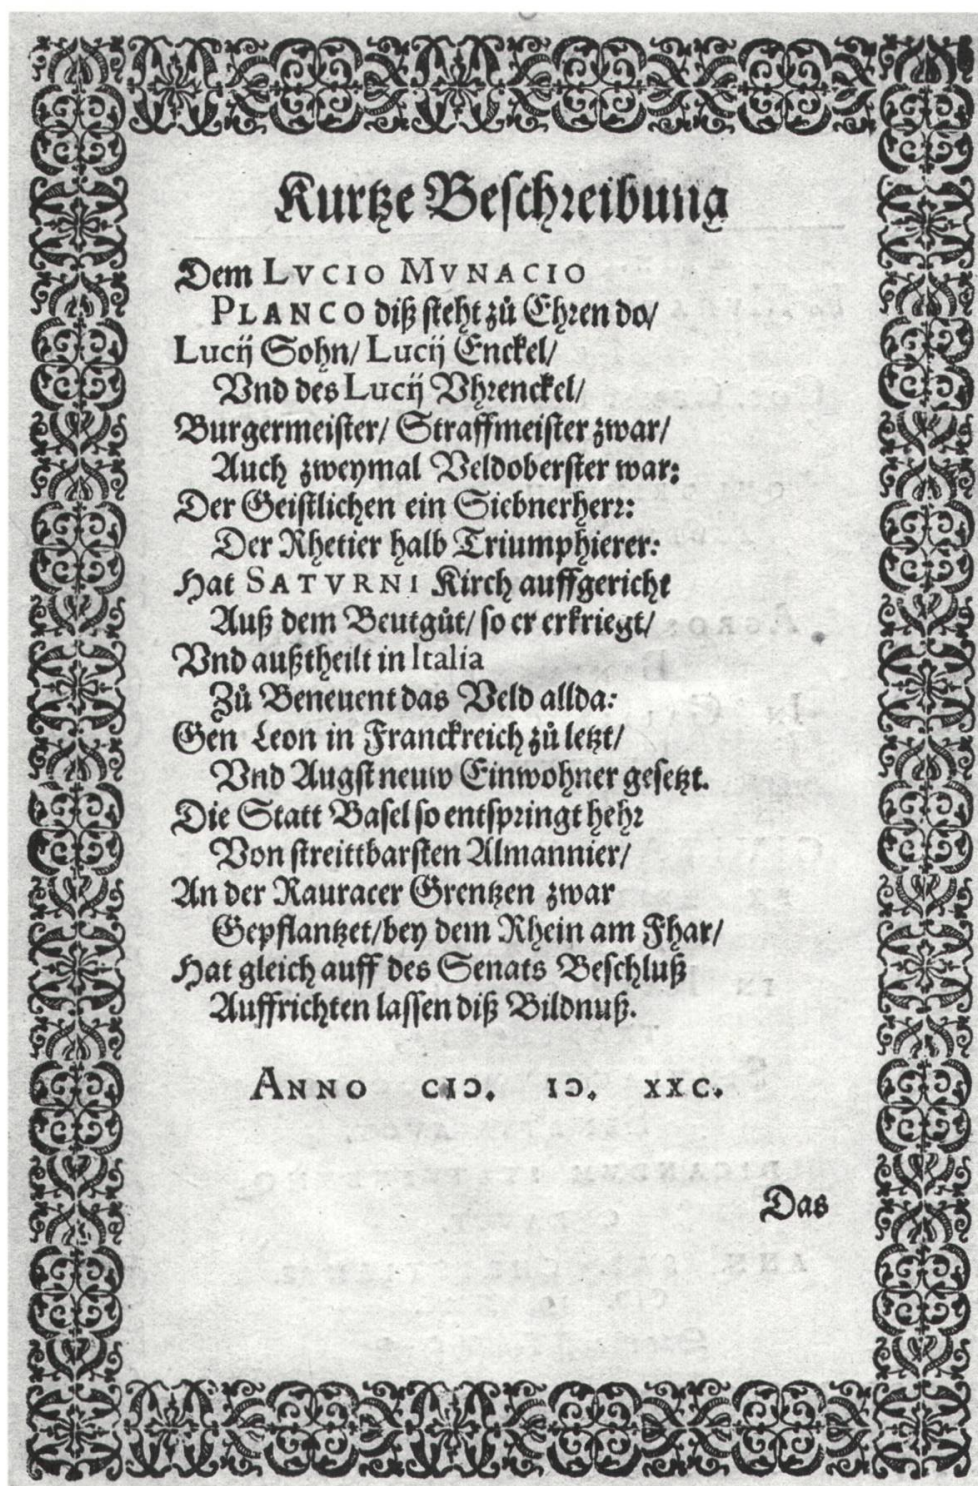 Kurtze Beschreibung
Dem LVCIO MVNACIO
PLANCO diß steht zů Ehren do/
Lucij Sohn/ Lucij Enckel/
Vnd des Lucij Vhrenckel/
Burgermeister/ Straffmeister zwar/
Auch zweymal Veldoberster war:
Der Geistlichen ein Siebnerherr:
Der Rhetier halb Triumphierer:
Hat SATVRNI Kirch auffgericht
Auß dem Beutgůt/ so er erkriegt/
Vnd außtheilt in Italia
Zů Beneuent das Veld allda:
Gen Leon in Franckreich zů letzt/
Vnd Augst neuw Einwohner gesetzt.
Die Statt Basel so entspringt hehr
Von streittbarsten Almannier/
An der Rauracer Grentzen zwar
Gepflantzet/bey dem Rhein am Fhar/
Hat gleich auff des Senats Beschluß
Auffrichten lassen diß Bildnuß.
ANNO CIↃ. IↃ. XXC.
Das